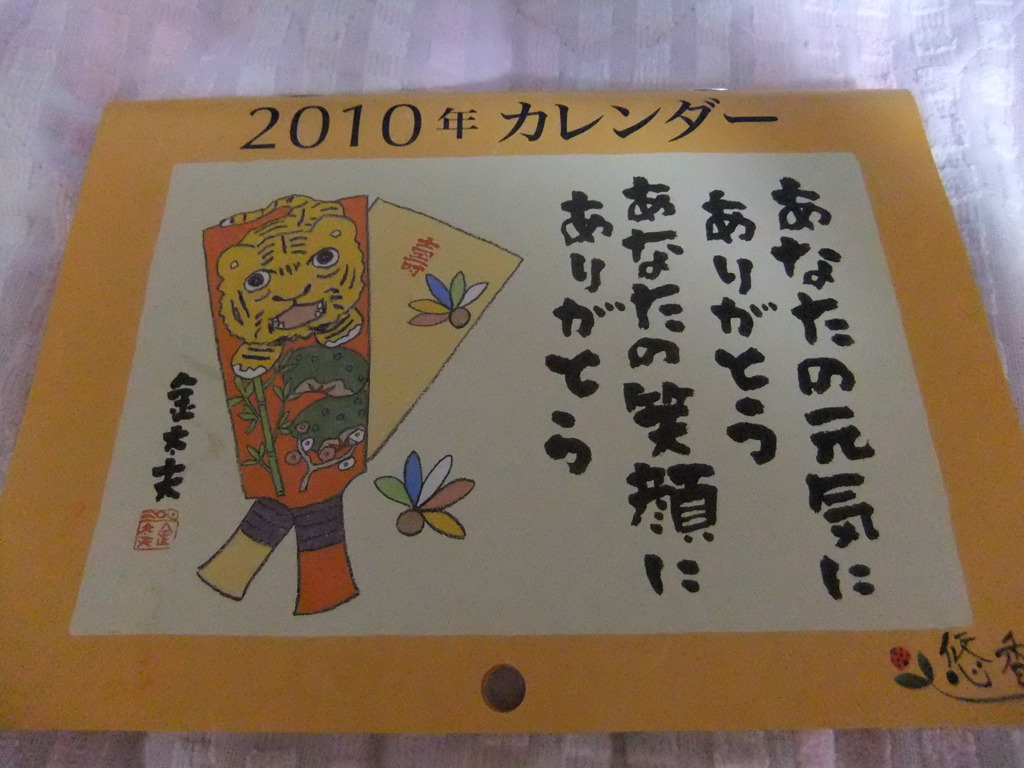 2010年 カレンダー
あなたの元気に
ありがとう
あなたの笑顔に
ありがとう
金太夫
悠香